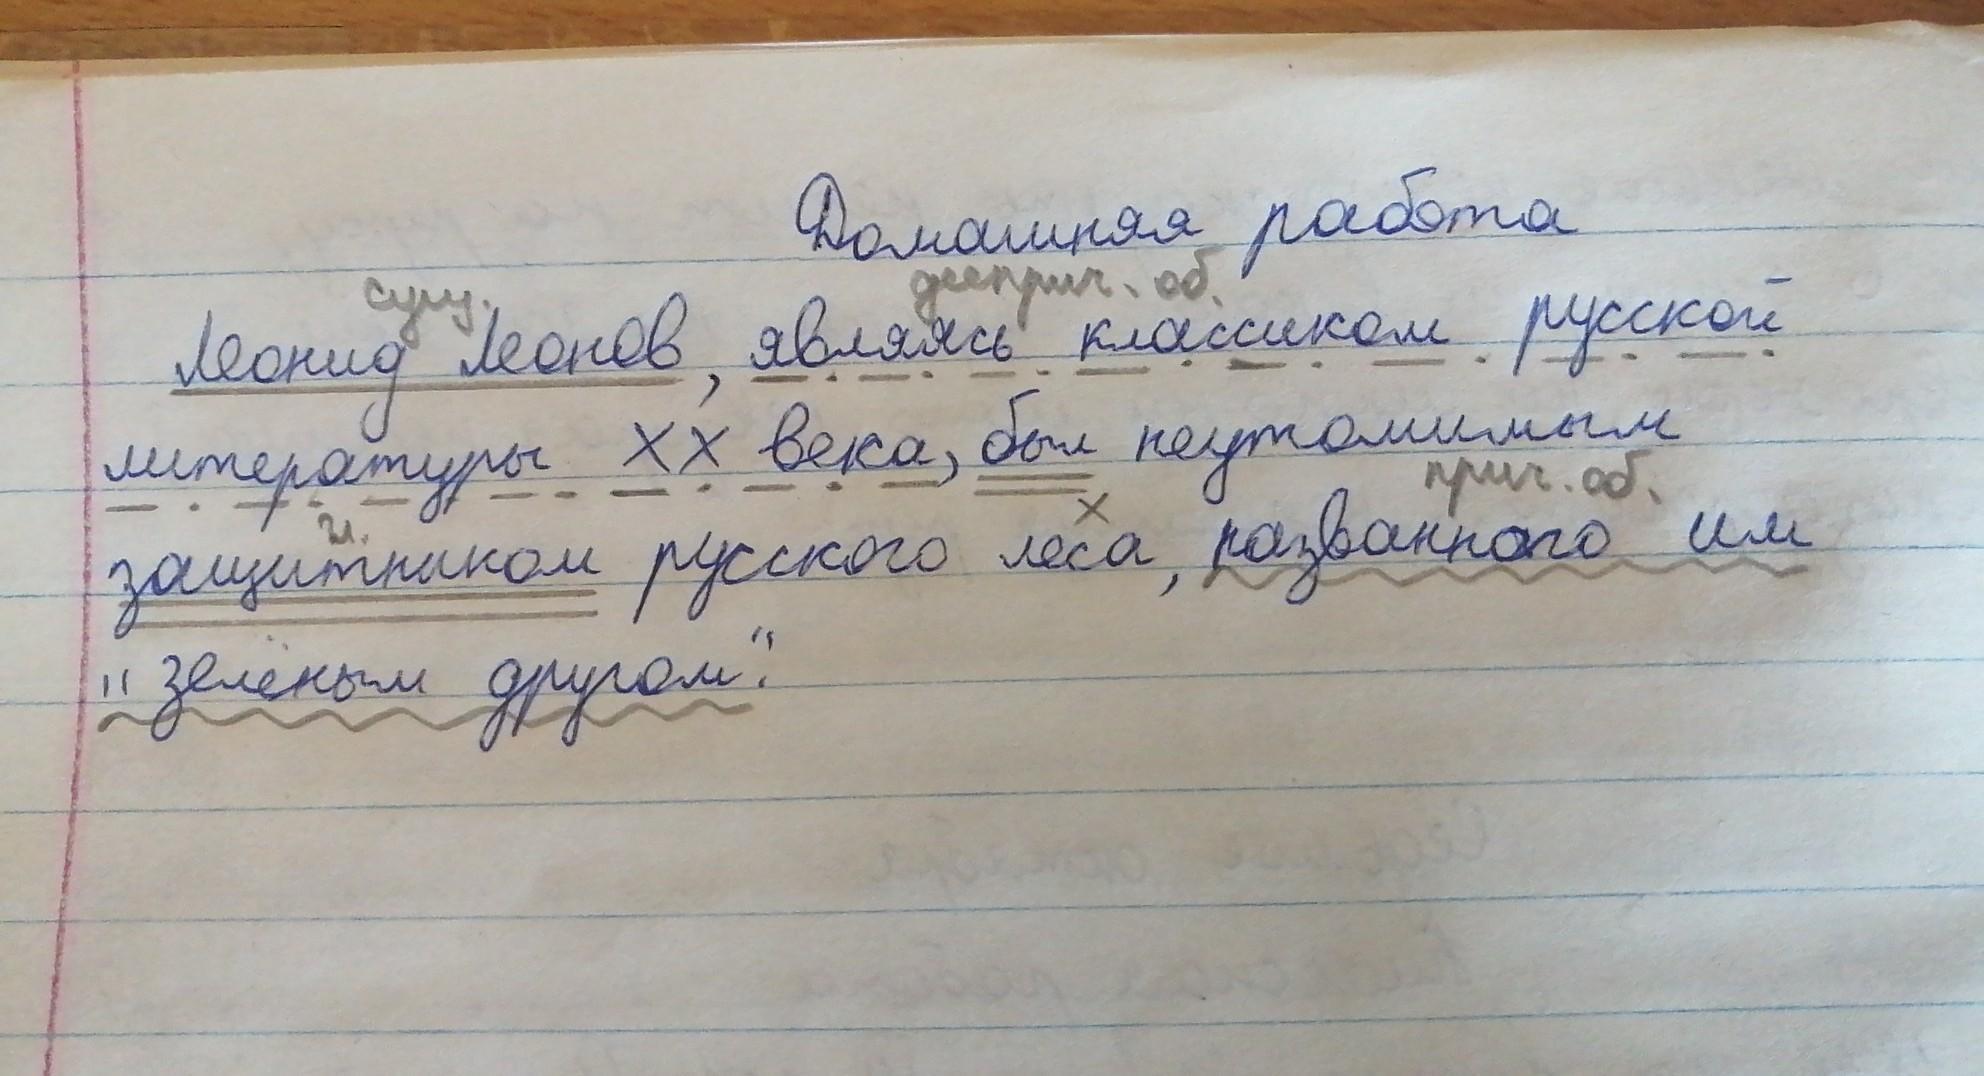 Домашняя работа
сущ. дееприч. об.
Леонид Леонов, являясь классиком русской
литературы XX века, был неутомимым
и. х прич. об.
защитником русского леса, названного им
"зелёным другом".